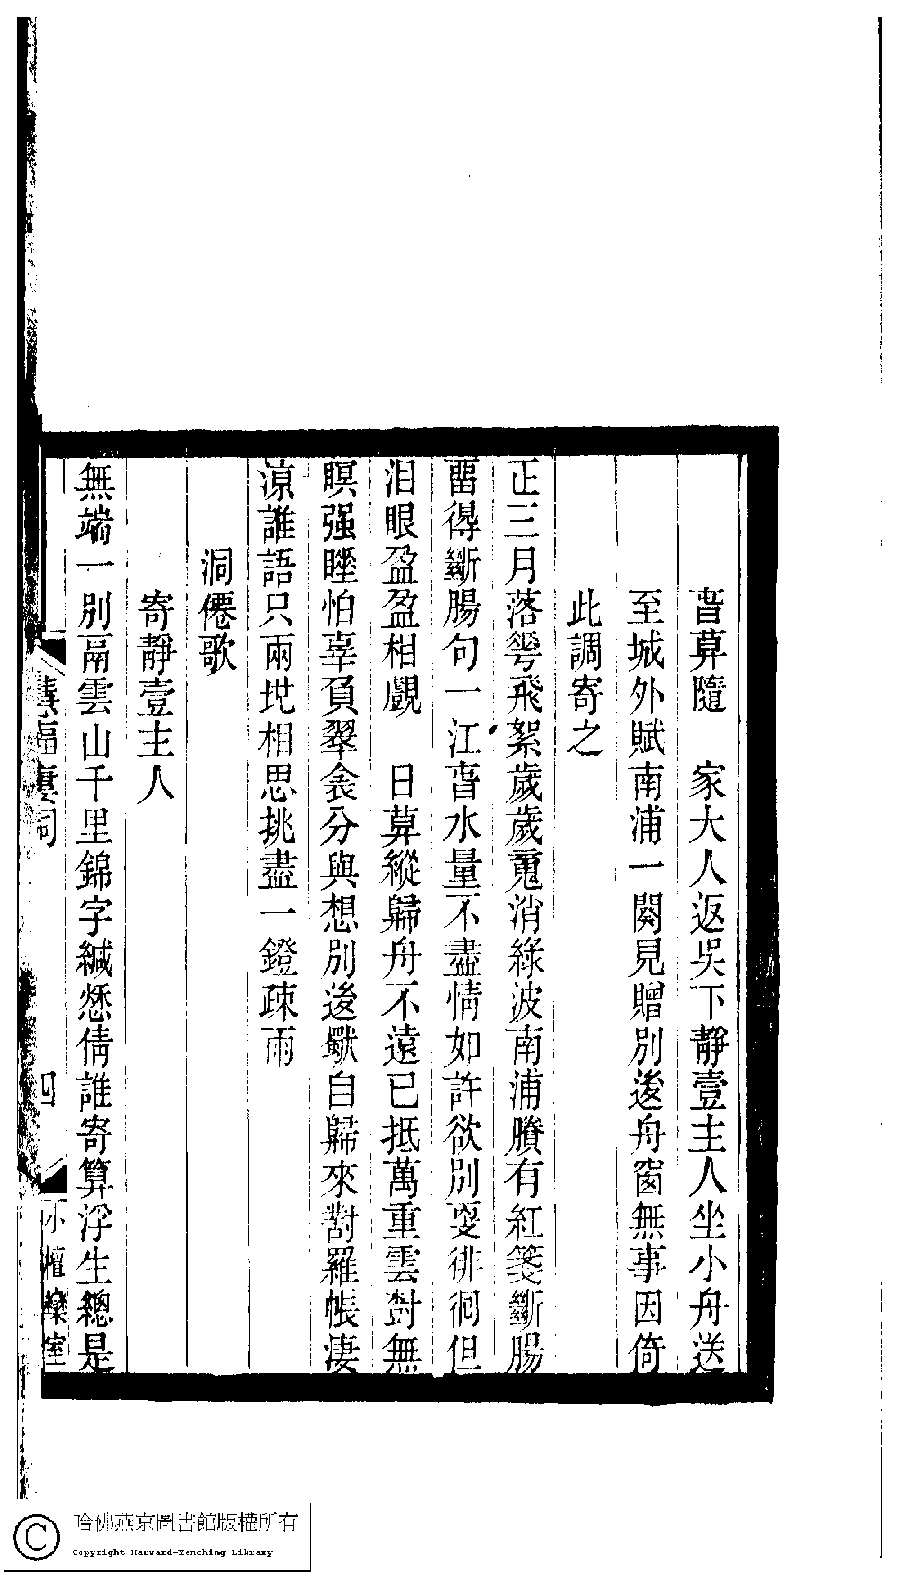 萅莫隨　家大人返吳下靜壹主人坐小舟送
至城外賦南浦一闋見贈別後舟窗無事因倚
此調寄之
正三月落雩飛絮歲歲䰟消綠波南浦賸有紅箋斷腸
畱得斷腸句一江萅水量不盡情如許欲別耍徘徊但
泪眼盈盈相覷　日莫縱歸舟不遠已抵萬重雲對無
瞑强睡怕辜負翠衾分與想別後獸自歸來對羅帳淒
涼誰語只兩地相思挑盡一鐙疎雨
洞僊歌
寄靜壹主人
無端一別鬲雲山千里錦字緘愁倩誰寄算浮生總是
慧福樓詞
四
小檀欒室
哈佛燕京圖書館版權所有
Copyright Harvard-Yenching Library